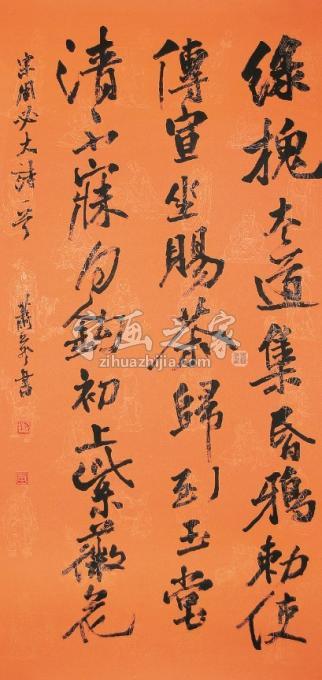 綠槐夾道集昏鴉勅使
傳宣坐賜茶歸到玉堂
清不寐月鈎初上紫薇花
宋周必大詩一首
蕭象書
字画之家
zihuazhijia.com